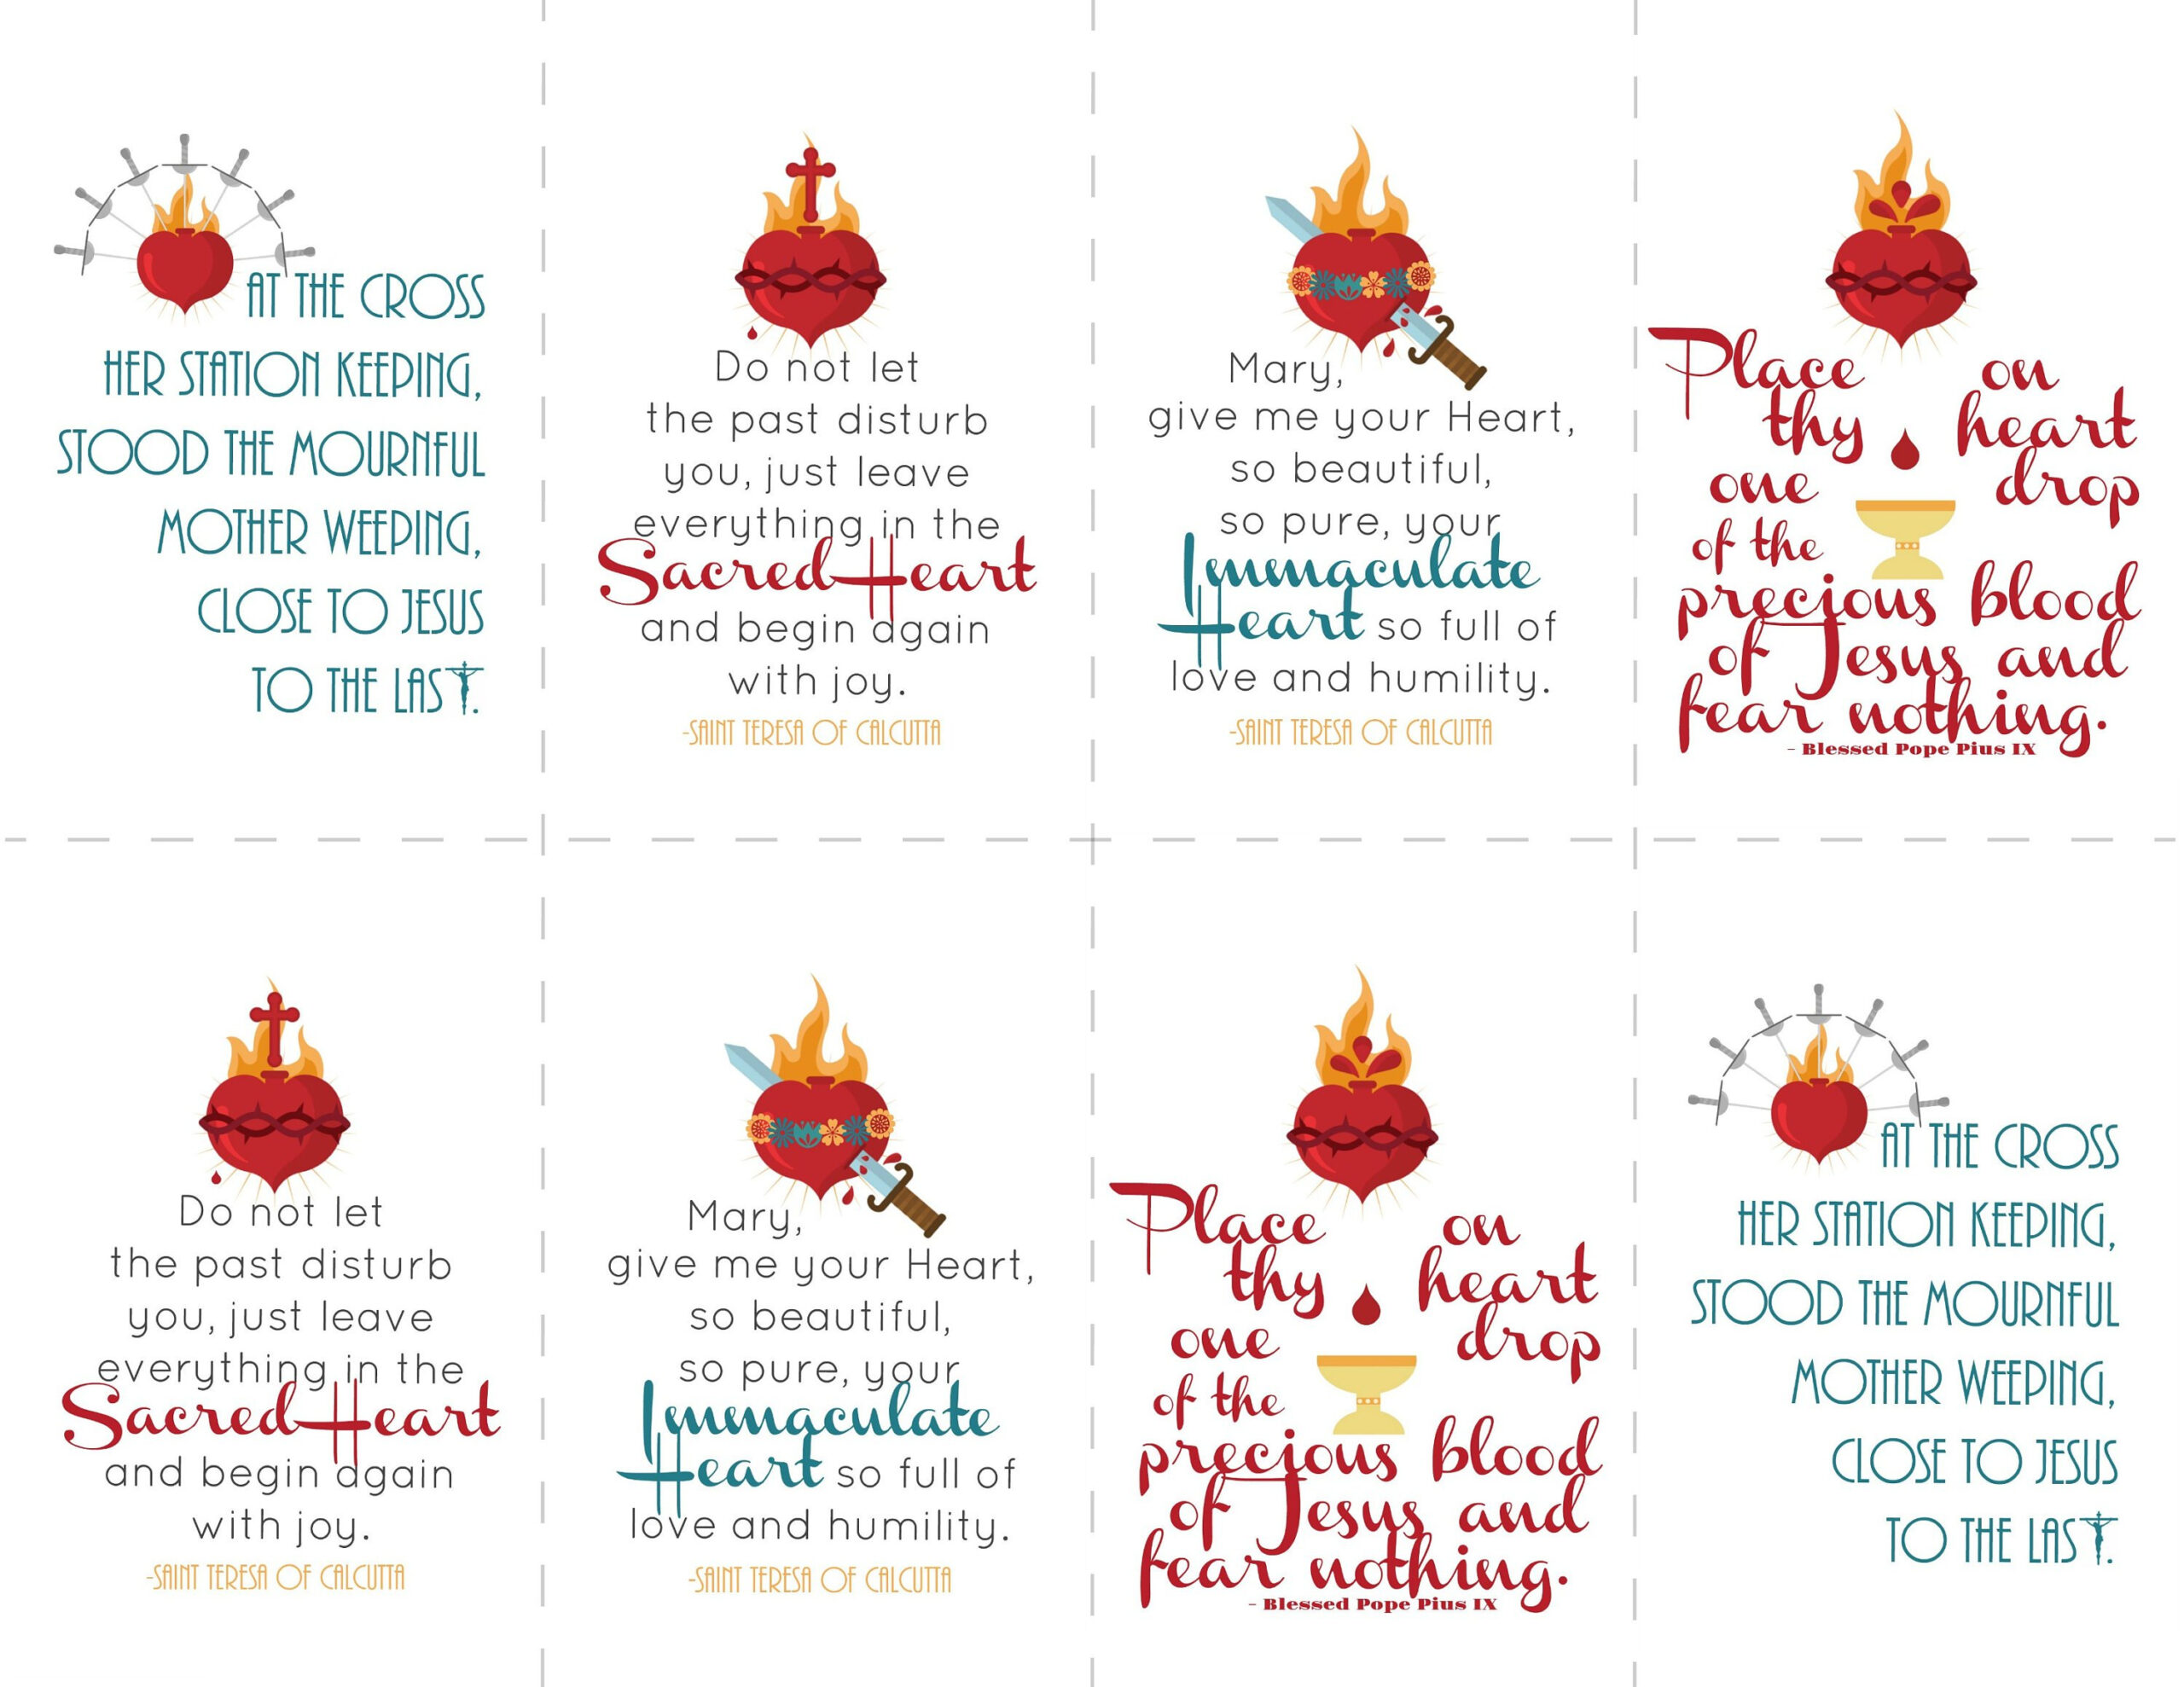 AT THE CROSS
HER STATION KEEPING,
STOOD THE MOURNFUL
MOTHER WEEPING,
CLOSE TO JESUS
TO THE LAST.
Do not let
the past disturb
you, just leave
everything in the
Sacred Heart
and begin again
with joy.
-SAINT TERESA OF CALCUTTA
Mary,
give me your Heart,
so beautiful,
so pure, your
Immaculate
Heart so full of
love and humility.
-SAINT TERESA OF CALCUTTA
Place on
thy heart
one drop
of the
precious blood
of Jesus and
fear nothing.
- Blessed Pope Pius IX
Do not let
the past disturb
you, just leave
everything in the
Sacred Heart
and begin again
with joy.
-SAINT TERESA OF CALCUTTA
Mary,
give me your Heart,
so beautiful,
so pure, your
Immaculate
Heart so full of
love and humility.
-SAINT TERESA OF CALCUTTA
Place on
thy heart
one drop
of the
precious blood
of Jesus and
fear nothing.
- Blessed Pope Pius IX
AT THE CROSS
HER STATION KEEPING,
STOOD THE MOURNFUL
MOTHER WEEPING,
CLOSE TO JESUS
TO THE LAST.